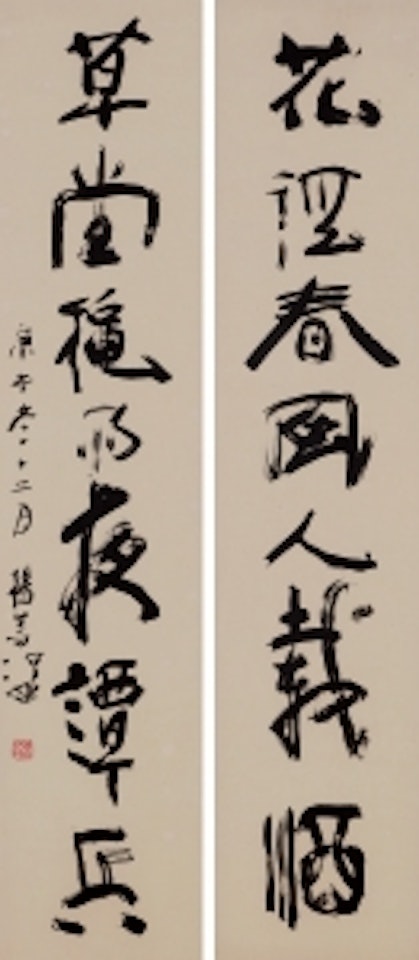 花徑春風人載酒
草堂穐雨夜譚兵
庚午冬十二月 楊善深